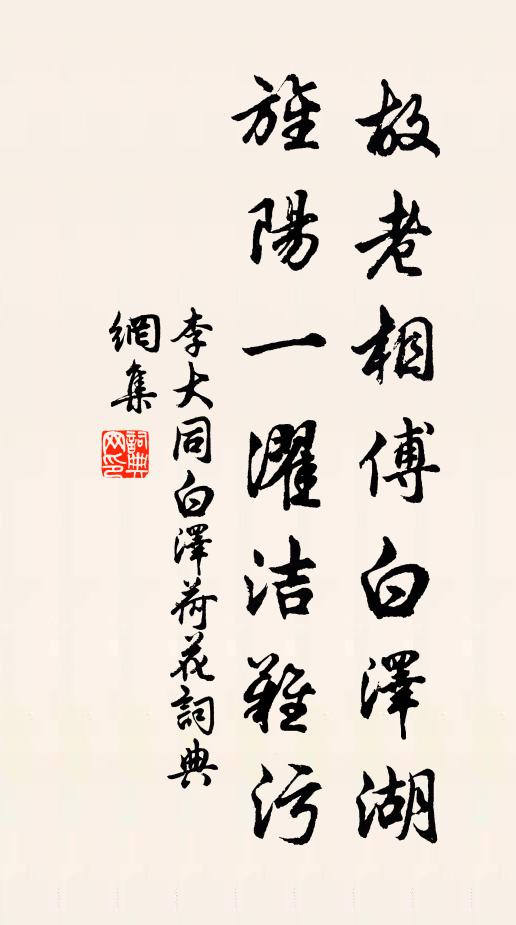 故老相傅白澤湖
旌陽一濯洁難污
李大同白澤荷花詞典
網集
詞典
网印